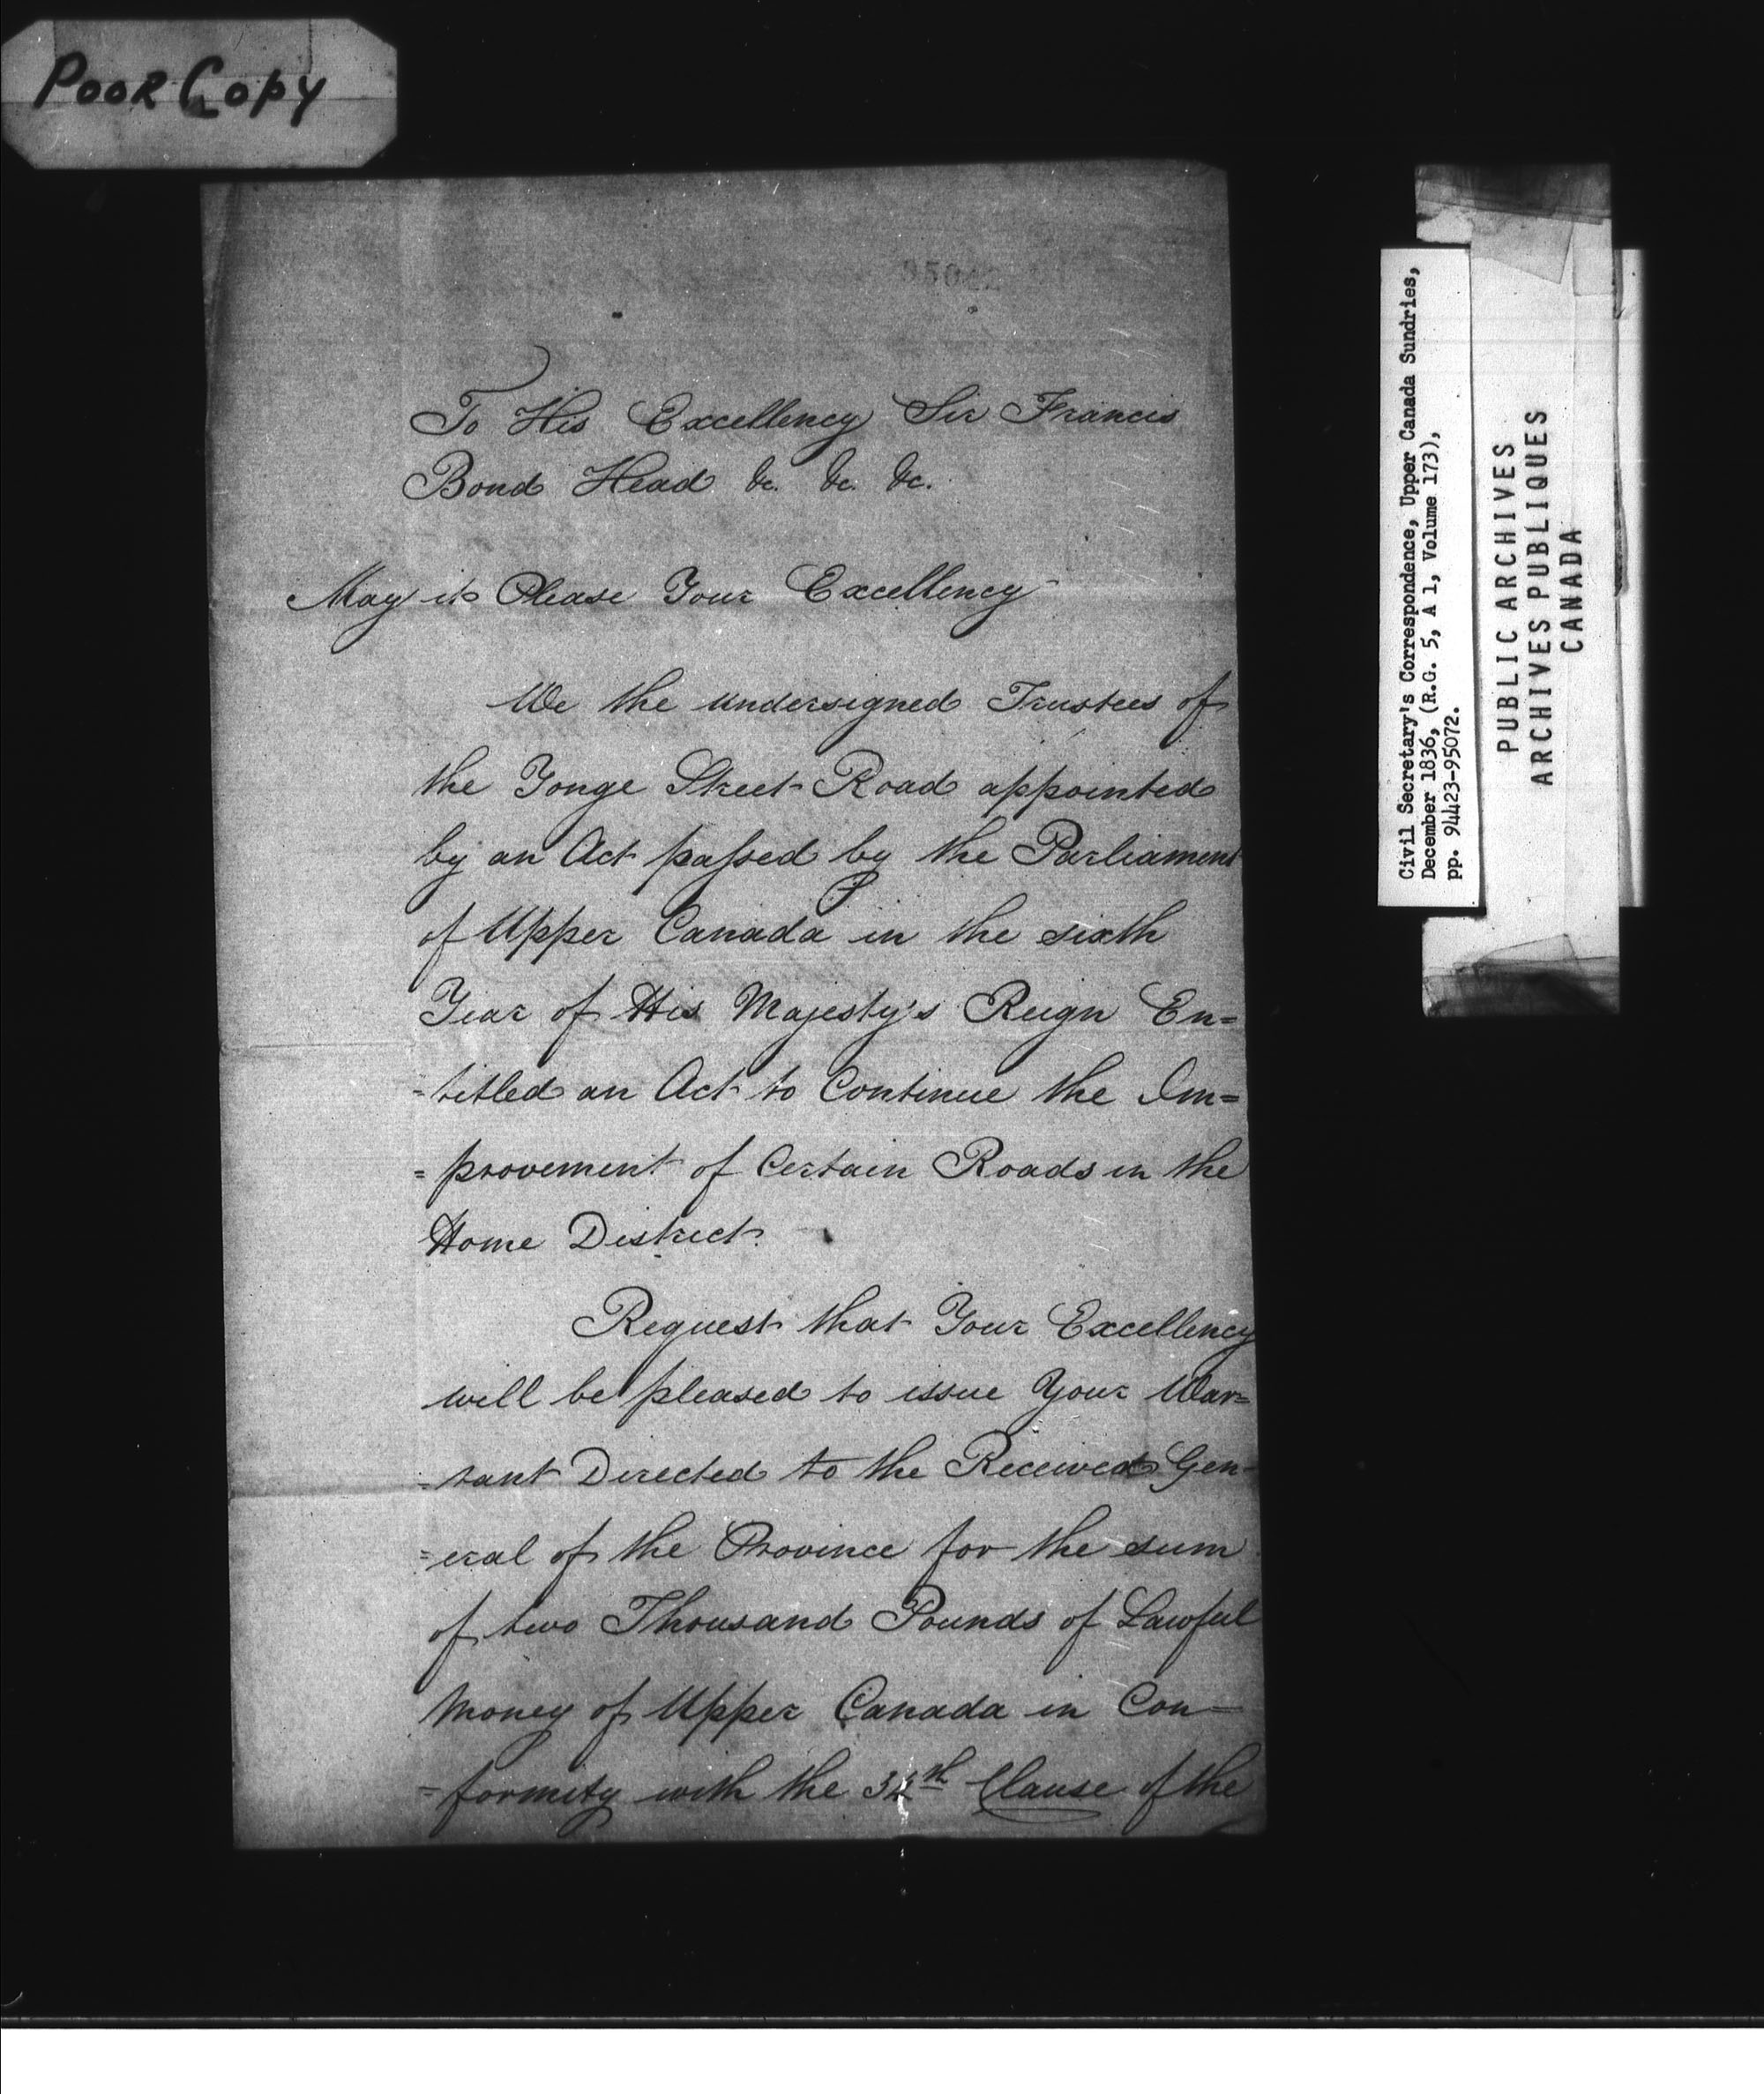 Poor Copy
To His Excellency Sir Francis
Bond Head &c. &c. &c.
May it Please Your Excellency
We the undersigned Trustees of
the Yonge Street Road appointed
by an Act passed by the Parliament
of Upper Canada in the sixth
Year of His Majesty's Reign En=
=titled an Act to Continue the Im=
=provement of Certain Roads in the
Home District.
Request that Your Excellency
will be pleased to issue Your War=
=rant Directed to the Receiver Gen-
=eral of the Province for the sum
of two Thousand Pounds of Lawful
Money of Upper Canada in Con-
=formity with the Clause of the
Civil Secretary's Correspondence, Upper Canada Sundries,
December 1836, (R.G. 5, A 1, Volume 173),
pp. 94423-95072.
PUBLIC ARCHIVES
ARCHIVES PUBLIQUES
CANADA